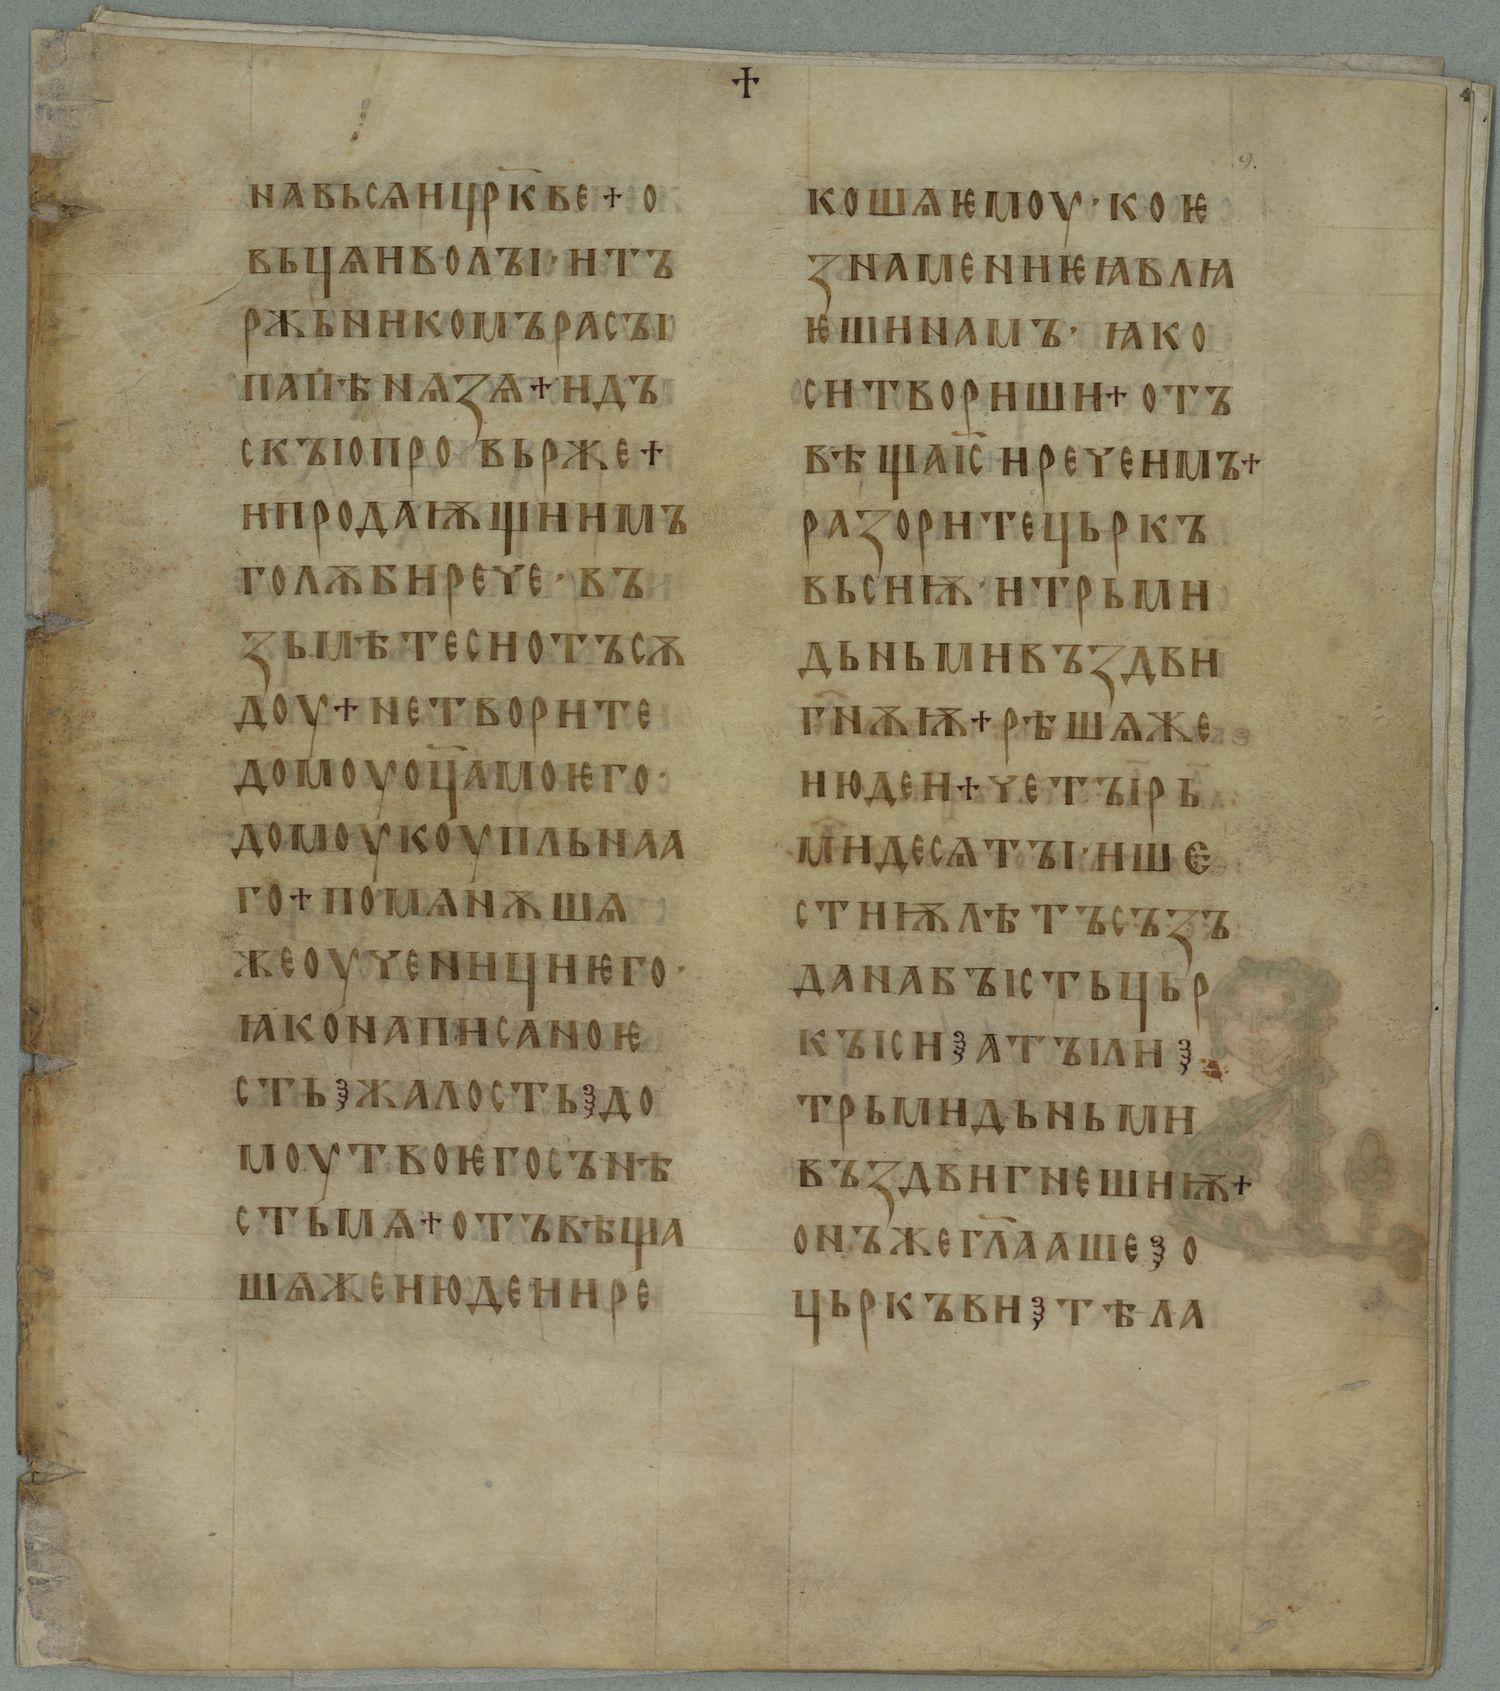 9.
наВьсѧицр҃кве + о
вьцѧиволъі · итъ
ржьникомърасъі
папѣнѧзѧ + идъ
скъіопровьрже +
ипродаѭщиимъ
голѫбирече · въ
зьмѣтесиотъсѫ
доу + нетворите
домоуоц҃амоѥго ·
домоукоупльнаа
го + помѧнѫшѧ
жеоученициѥго ·
ꙗконаписаноѥ
сть ⁘ жалость ⁘ до
моутвоѥгосънѣ
стьмѧ + отъвѣща
шѧжеиюдеиире
кошѧѥмоу · коѥ
знамениѥꙗвлꙗ
ѥшинамъ · ꙗко
ситвориши + отъ
вѣщаіс҃иречеимъ +
разоритецьркъ
вьсиѭ · итрьми
дьньмивъздви
гнѫѭ + рѣшѧже
июдеи + четъірь
мидесѧтъі · ише
стиѭлѣтъсъзъ
данабъістьцьр
къіси ⁘ атъіли ⁘
трьмидьньми
въздвигнешиѭ +
онъжегл҃ааше ⁘ о
цьркъви ⁘ тѣла